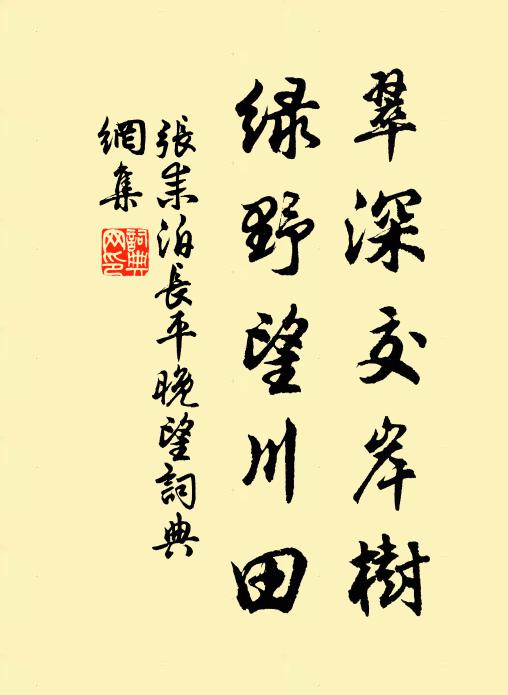 翠深交岸樹
緑野望川田
張耒泊長平晚望詞典
網集
詞典
网印